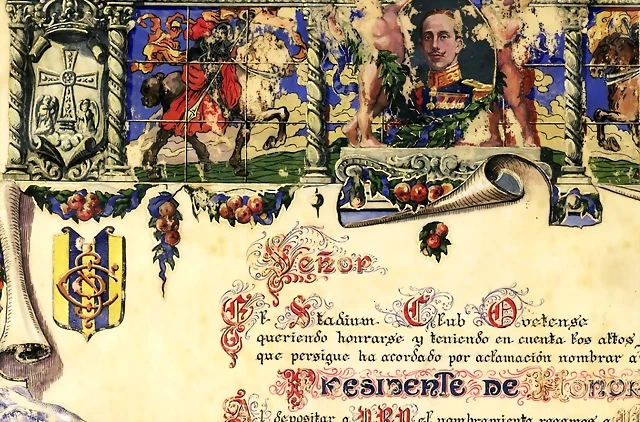 Señor
El Stadium Club Ovetense
queriendo honrarse y teniendo en cuenta los altos
que persigue ha acordado por aclamación nombrar a
PRESIDENTE DE HONOR
Al depositar a V.R.P. el nombramiento rogamos a